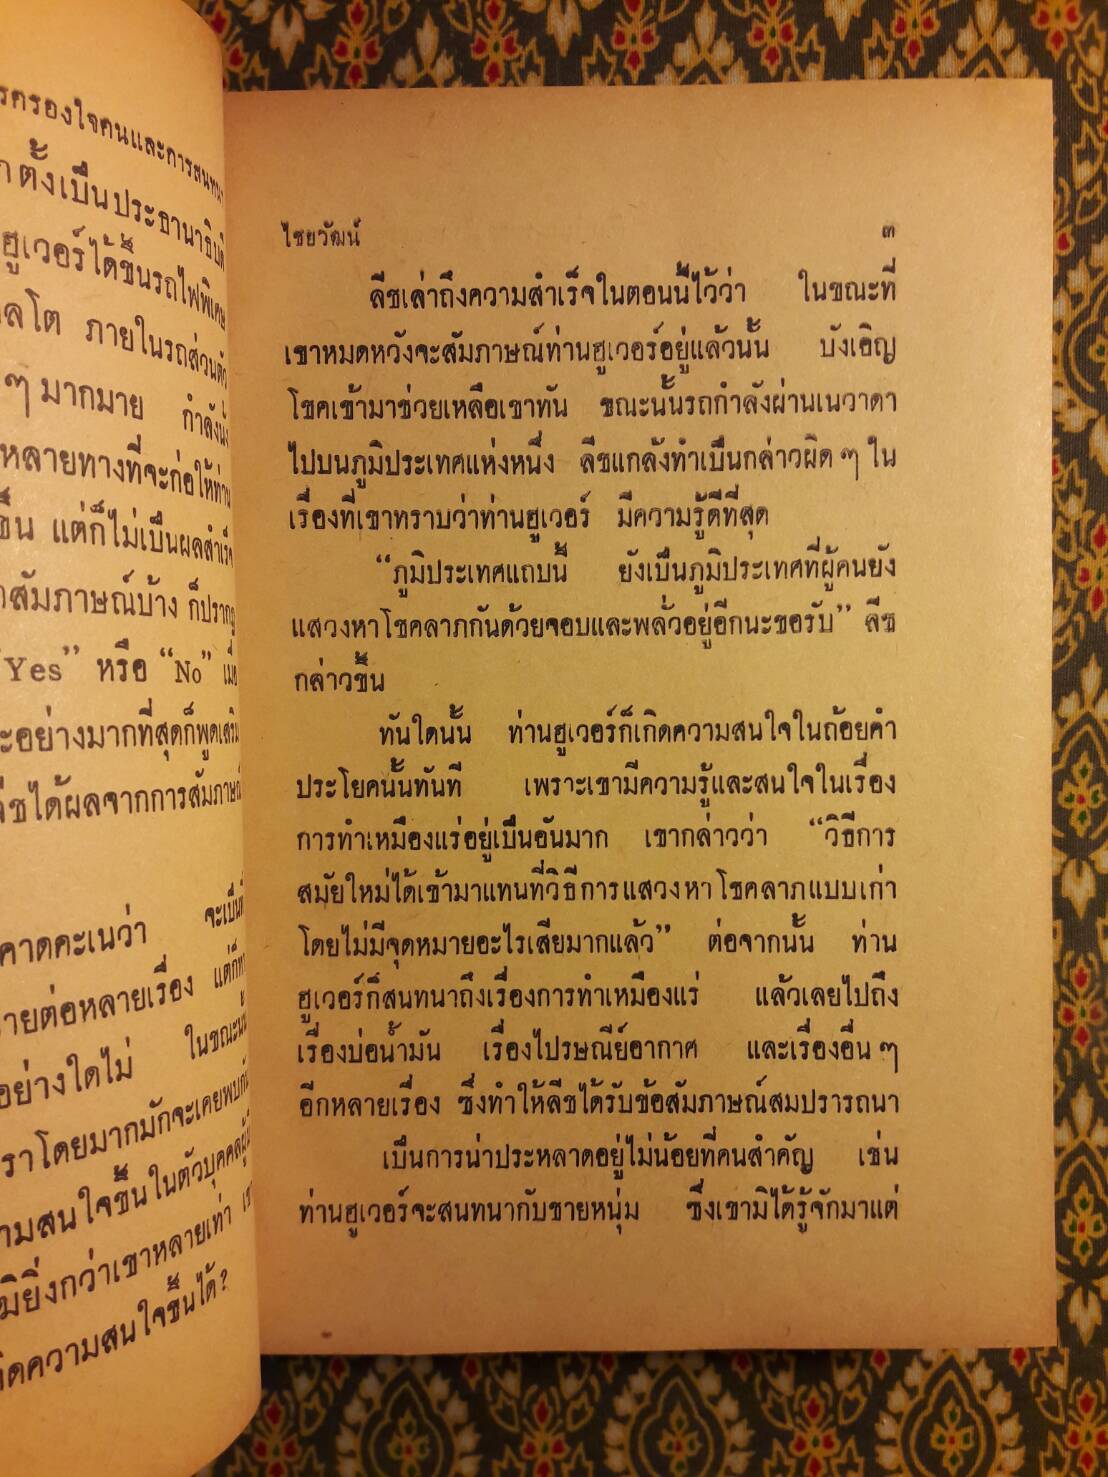 รครองใจคนและการสนทนา
ตั้งเป็นประธานาธิบดี
ฮูเวอร์ได้ขึ้นรถไฟพิเศษ
ลโต ภายในรถส่วนตัว
ๆ มากมาย กำลังนั่ง
หลายทางที่จะก่อให้ท่าน
ขึ้น แต่ก็ไม่เป็นผลสำเร็จ
สัมภาษณ์บ้าง ก็ปรากฏ
"Yes" หรือ "No" เมื่อ
ะอย่างมากที่สุดก็พูดเสริม
ลีชได้ผลจากการสัมภาษณ์
คาดคะเนว่า จะเป็นที่
ายต่อหลายเรื่อง แต่ก็หา
อย่างใดไม่ ในขณะนั้น
ราโดยมากมักจะเคยพบกับ
ามสนใจขึ้นในตัวบุคคลผู้
มิยิ่งกว่าเขาหลายเท่า เรา
กิดความสนใจขึ้นได้?
ไชยวัฒน์ ๓
ลีชเล่าถึงความสำเร็จในตอนนี้ไว้ว่า ในขณะที่
เขาหมดหวังจะสัมภาษณ์ท่านฮูเวอร์อยู่แล้วนั้น บังเอิญ
โชคเข้ามาช่วยเหลือเขาทัน ขณะนั้นรถกำลังผ่านเนวาดา
ไปบนภูมิประเทศแห่งหนึ่ง ลีชแกล้งทำเป็นกล่าวผิด ๆ ใน
เรื่องที่เขาทราบว่าท่านฮูเวอร์ มีความรู้ดีที่สุด
"ภูมิประเทศแถบนี้ ยังเป็นภูมิประเทศที่ผู้คนยัง
แสวงหาโชคลาภกันด้วยจอบและพลั่วอยู่อีกนะขอรับ" ลีช
กล่าวขึ้น
ทันใดนั้น ท่านฮูเวอร์ก็เกิดความสนใจในถ้อยคำ
ประโยคนั้นทันที เพราะเขามีความรู้และสนใจในเรื่อง
การทำเหมืองแร่อยู่เป็นอันมาก เขากล่าวว่า "วิธีการ
สมัยใหม่ได้เข้ามาแทนที่วิธีการแสวงหาโชคลาภแบบเก่า
โดยไม่มีจุดหมายอะไรเสียมากแล้ว" ต่อจากนั้น ท่าน
ฮูเวอร์ก็สนทนาถึงเรื่องการทำเหมืองแร่ แล้วเลยไปถึง
เรื่องบ่อน้ำมัน เรื่องไปรษณีย์อากาศ และเรื่องอื่น ๆ
อีกหลายเรื่อง ซึ่งทำให้ลีชได้รับข้อสัมภาษณ์สมปรารถนา
เป็นการน่าประหลาดอยู่ไม่น้อยที่คนสำคัญ เช่น
ท่านฮูเวอร์จะสนทนากับชายหนุ่ม ซึ่งเขามิได้รู้จักมาแต่